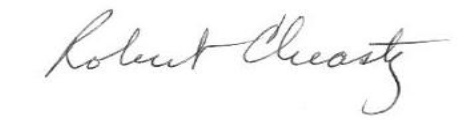 Robert Cheasty